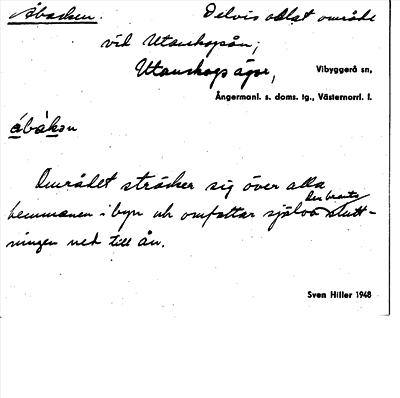 Åbacken. Delvis odlat område
vid Utanskogsån;
Utanskogs ägor, Vibyggerå sn,
Ångermanl. s. doms. tg., Västernorrl. l.
åbakən
Området sträcker sig över alla
den branta
hemmanen i byn och omfattar själva slutt-
ningen ned till ån.
Sven Hiller 1948